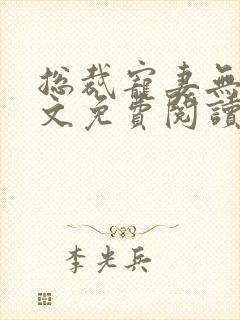 總裁寵妻無
文免費閱讀
李光兵